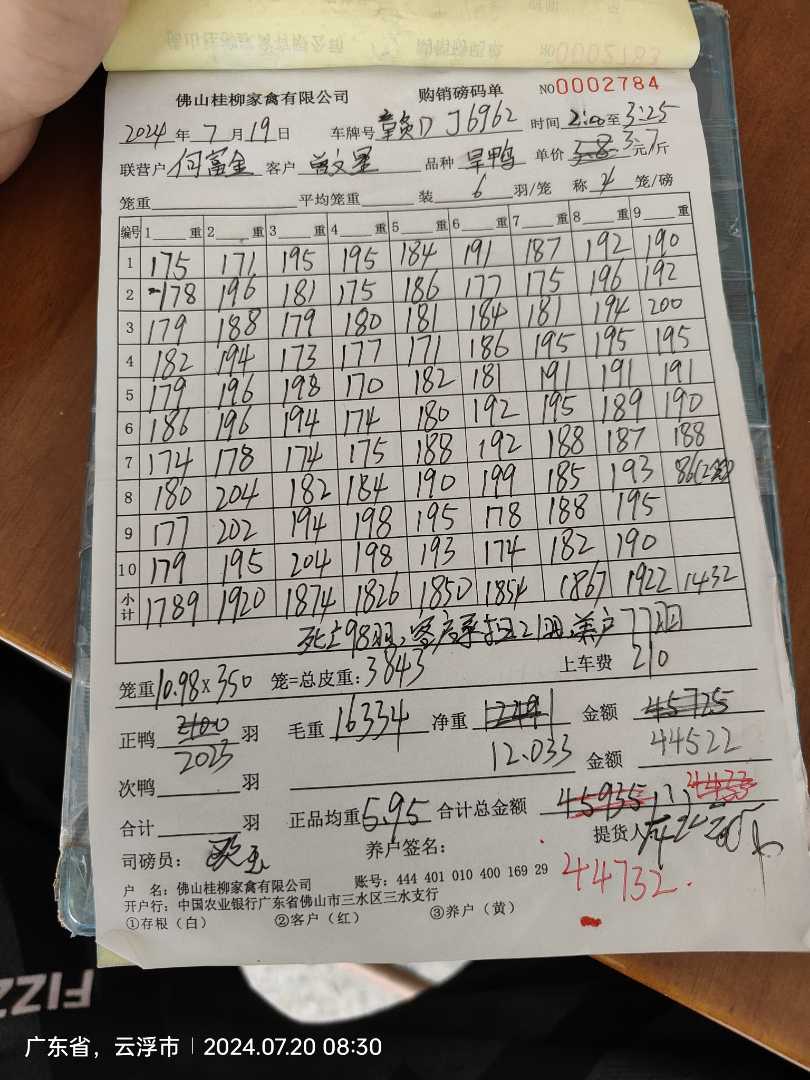 NO0002783
佛山桂柳家禽有限公司 购销磅码单 NO0002784
2024年7月19日 车牌号 赣D J6962 时间 2:00至3:25
联营户 何富金 客户 曾文星 品种 旱鸭 单价 3.8 3.7元/斤
笼重 平均笼重 装 6 羽/笼 称 4 笼/磅
编号 1 重 2 重 3 重 4 重 5 重 6 重 7 重 8 重 9 重
1 175 171 195 195 184 191 187 192 190
2 178 196 181 175 186 177 175 196 192
3 179 188 179 180 181 184 181 194 200
4 182 194 173 177 171 186 195 195 195
5 179 196 198 170 182 181 191 191 191
6 186 196 194 174 180 192 195 189 190
7 174 178 174 175 188 192 188 187 188
8 180 204 182 184 190 199 185 193 86(2笼)
9 177 202 194 198 195 178 188 195
10 179 195 204 198 193 174 182 190
小计 1789 1920 1874 1826 1850 1854 1867 1922 1432
死亡98羽,客户承担21羽,养户77羽
笼重 10.98×350 笼=总皮重: 3843 上车费 210
正鸭 2100 羽 毛重 16334 净重 12491 金额 45725
2025 12.033 金额 44522
次鸭 羽
合计 羽 正品均重 5.95 合计总金额 45935
司磅员: 养户签名: 提货人
44732.
户 名: 佛山桂柳家禽有限公司 账号: 444 401 010 400 169 29
开户行: 中国农业银行广东省佛山市三水区三水支行
①存根(白) ②客户(红) ③养户(黄)
FIZZ
广东省，云浮市 | 2024.07.20 08:30